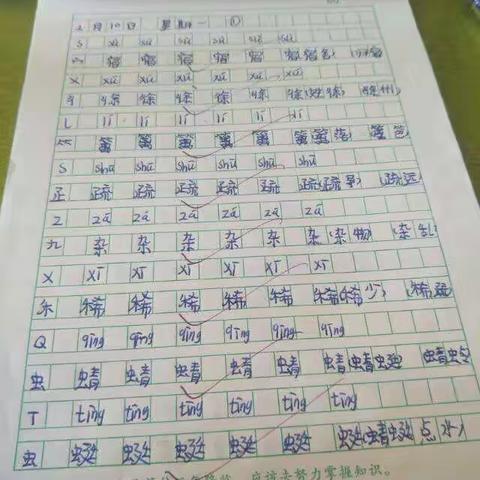 2月10日 星期一 ①
S sù sù sù sù sù
宀 宿 宿 宿 宿 宿 宿(宿舍)(归宿)
X xú xú xú xú xú xú
彳 徐 徐 徐 徐 徐 徐(姓徐)(徐州)
L lí lí lí lí lí lí
篱 篱 篱 篱 篱 篱(篱落)(篱笆)
S shū shū shū shū shū shū
疏 疏 疏 疏 疏 疏(疏导)(疏远)
Z zá zá zá zá zá zá
九 杂 杂 杂 杂 杂 杂(杂物)(杂乱)
X xī xī xī xī xī xī
禾 稀 稀 稀 稀 稀 稀(稀少)(稀疏)
Q qīng qīng qīng qīng qīng qīng
虫 蜻 蜻 蜻 蜻 蜻 蜻(蜻蜓)(蜻蛉
T tíng tíng tíng tíng tíng tíng
虫 蜓 蜓 蜓 蜓 蜓 蜓(蜻蜓点水)
应该去努力掌握知识。